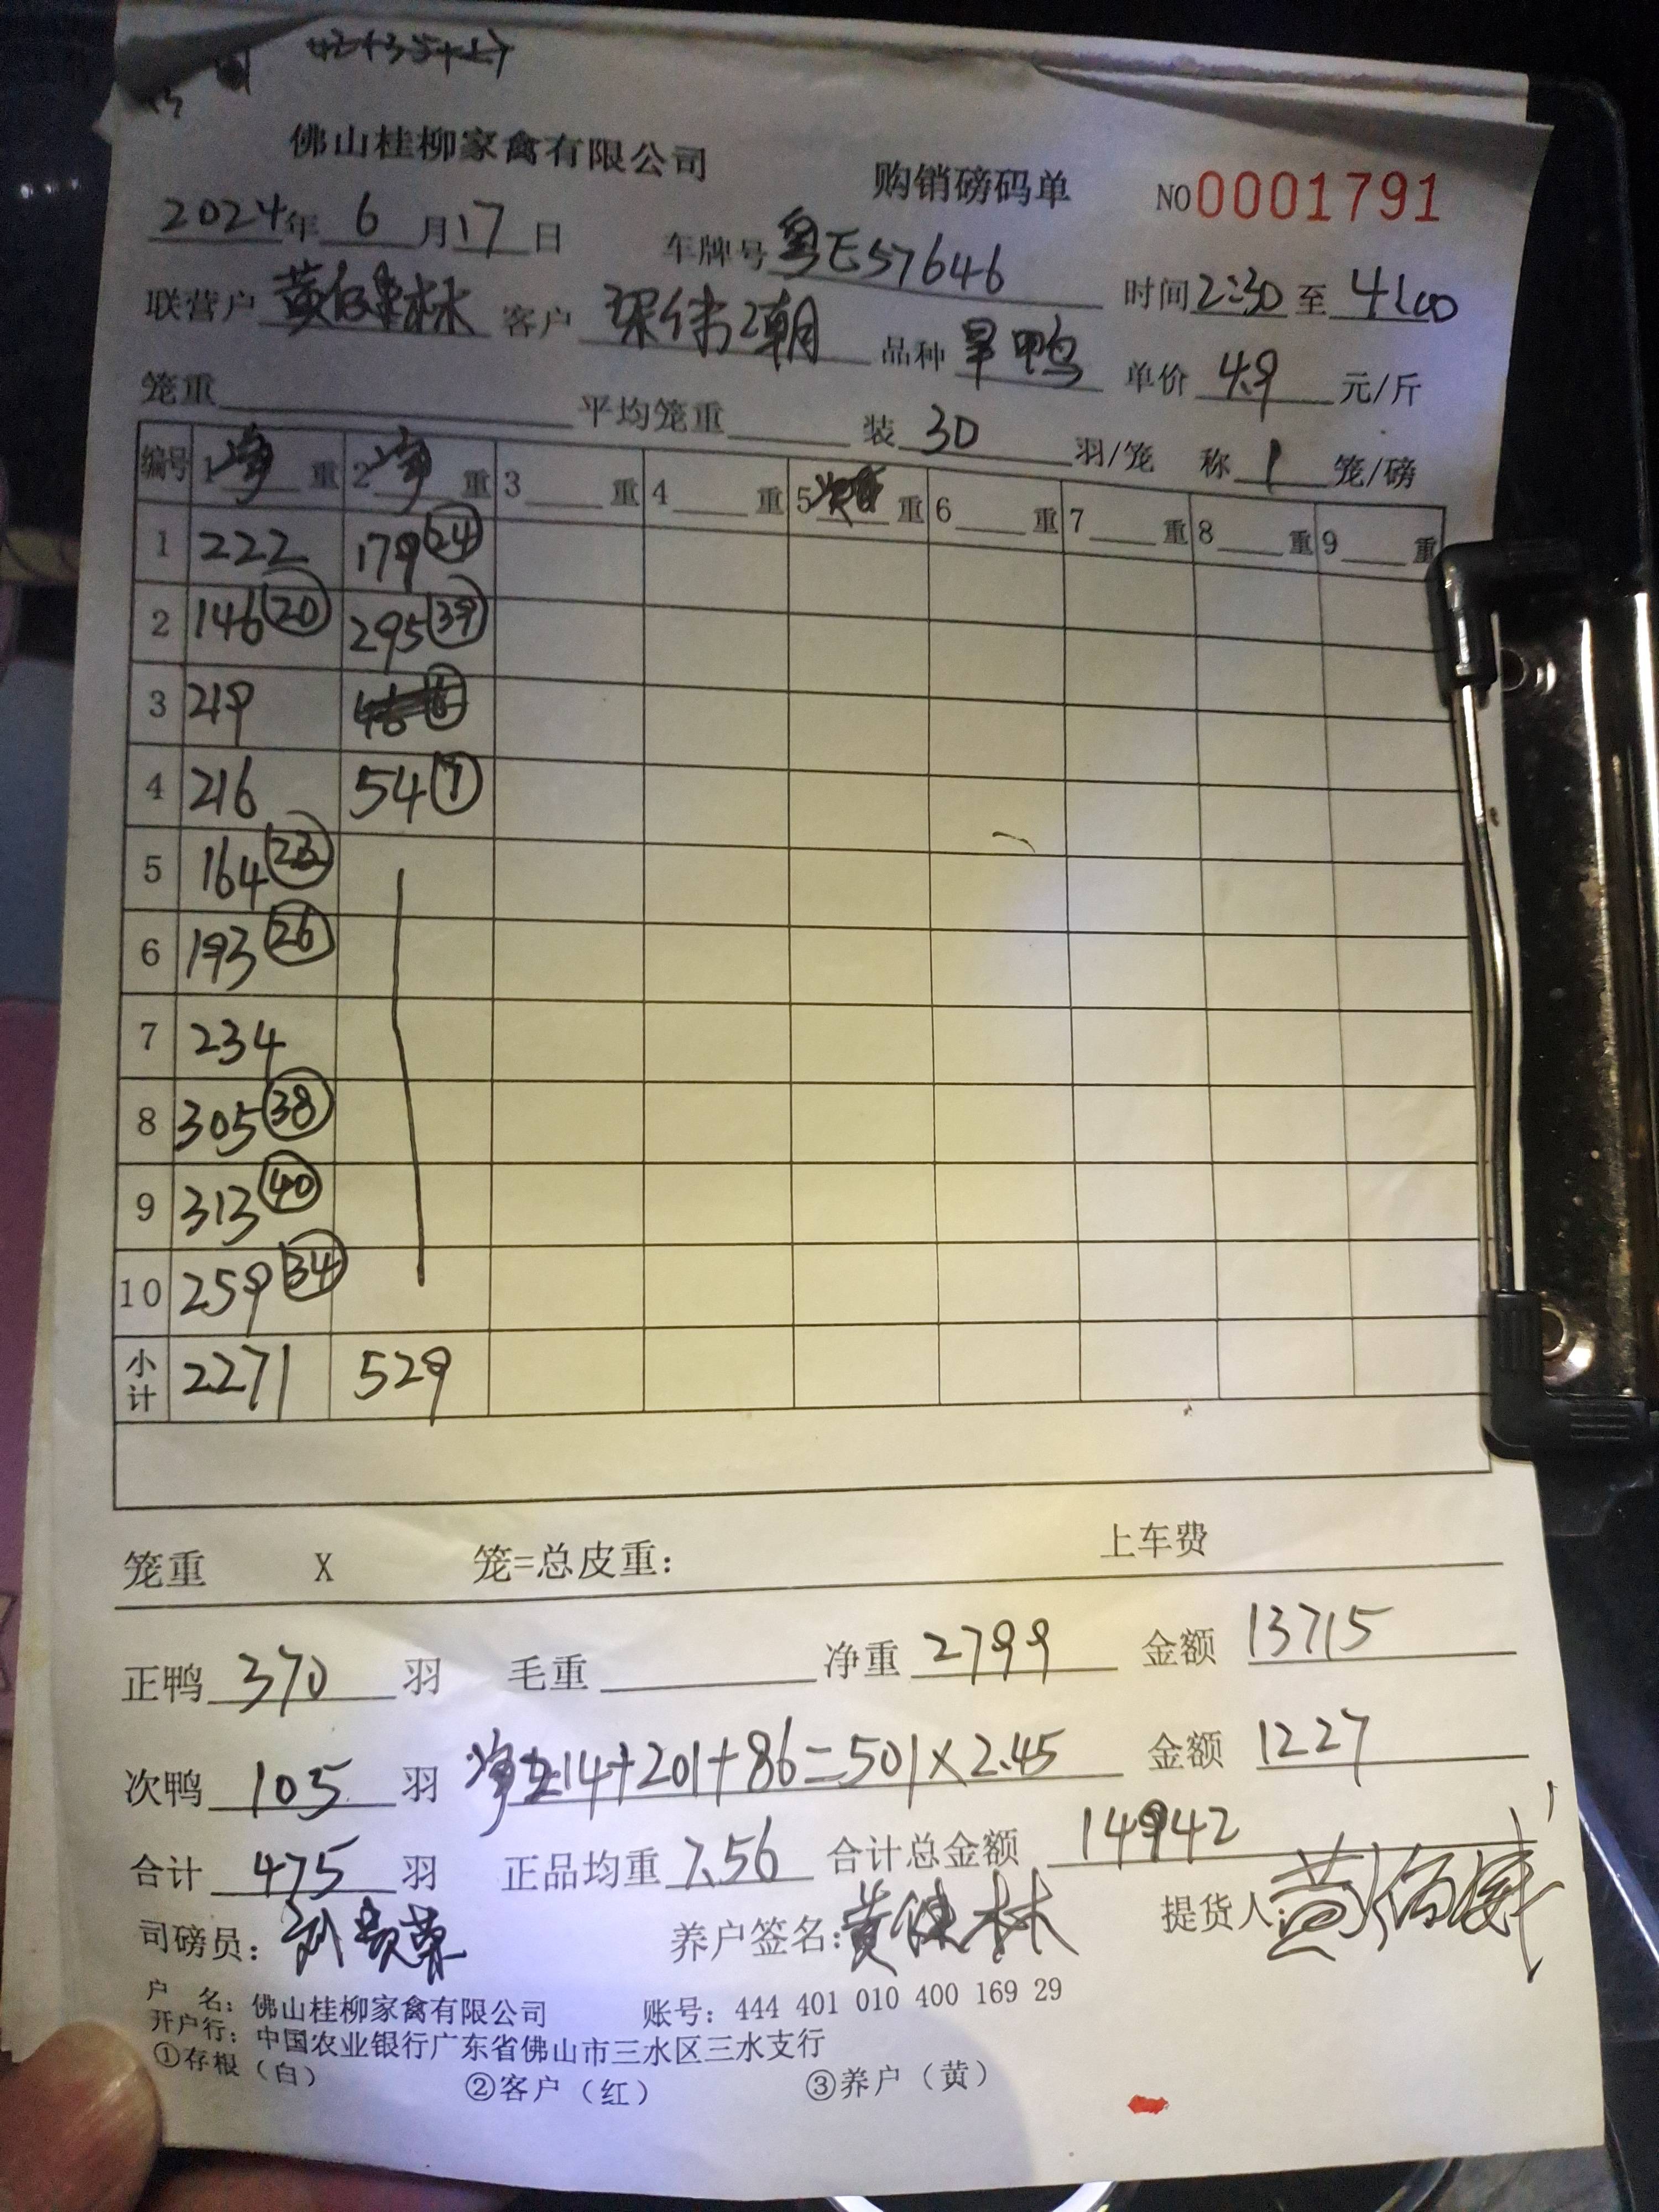 42+35+27
佛山桂柳家禽有限公司 购销磅码单 NO 0001791
2024年 6 月 17 日 车牌号 粤E57646 时间 2:30 至 4:00
联营户 客户 品种 旱鸭 单价 4.9 元/斤
笼重 平均笼重 装 30 羽/笼 称 1 笼/磅
编号 1 净 重 2 净 重 3 重 4 重 5 重 6 重 7 重 8 重 9 重
1 222 179 (24)
2 146 (20) 295 (39)
3 219
4 216 54 (7)
5 164 (23)
6 193 (26)
7 234
8 305 (38)
9 313 (40)
10 259 (34)
小计 2271 529
笼重 X 笼=总皮重: 上车费
正鸭 370 羽 毛重 净重 2799 金额 13715
次鸭 105 羽 净 214+201+86=501×2.45 金额 1227
合计 475 羽 正品均重 7.56 合计总金额 14942
司磅员: 刘贵荣 养户签名: 黄健林 提货人: 黄
户 名: 佛山桂柳家禽有限公司 账号: 444 401 010 400 169 29
开户行: 中国农业银行广东省佛山市三水区三水支行
①存根（白） ②客户（红） ③养户（黄）